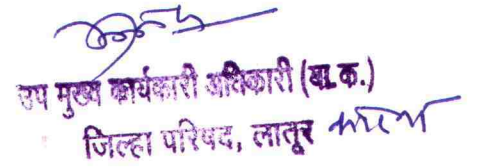 उप मुख्य कार्यकारी अधिकारी (बा.क.)
जिल्हा परिषद, लातूर